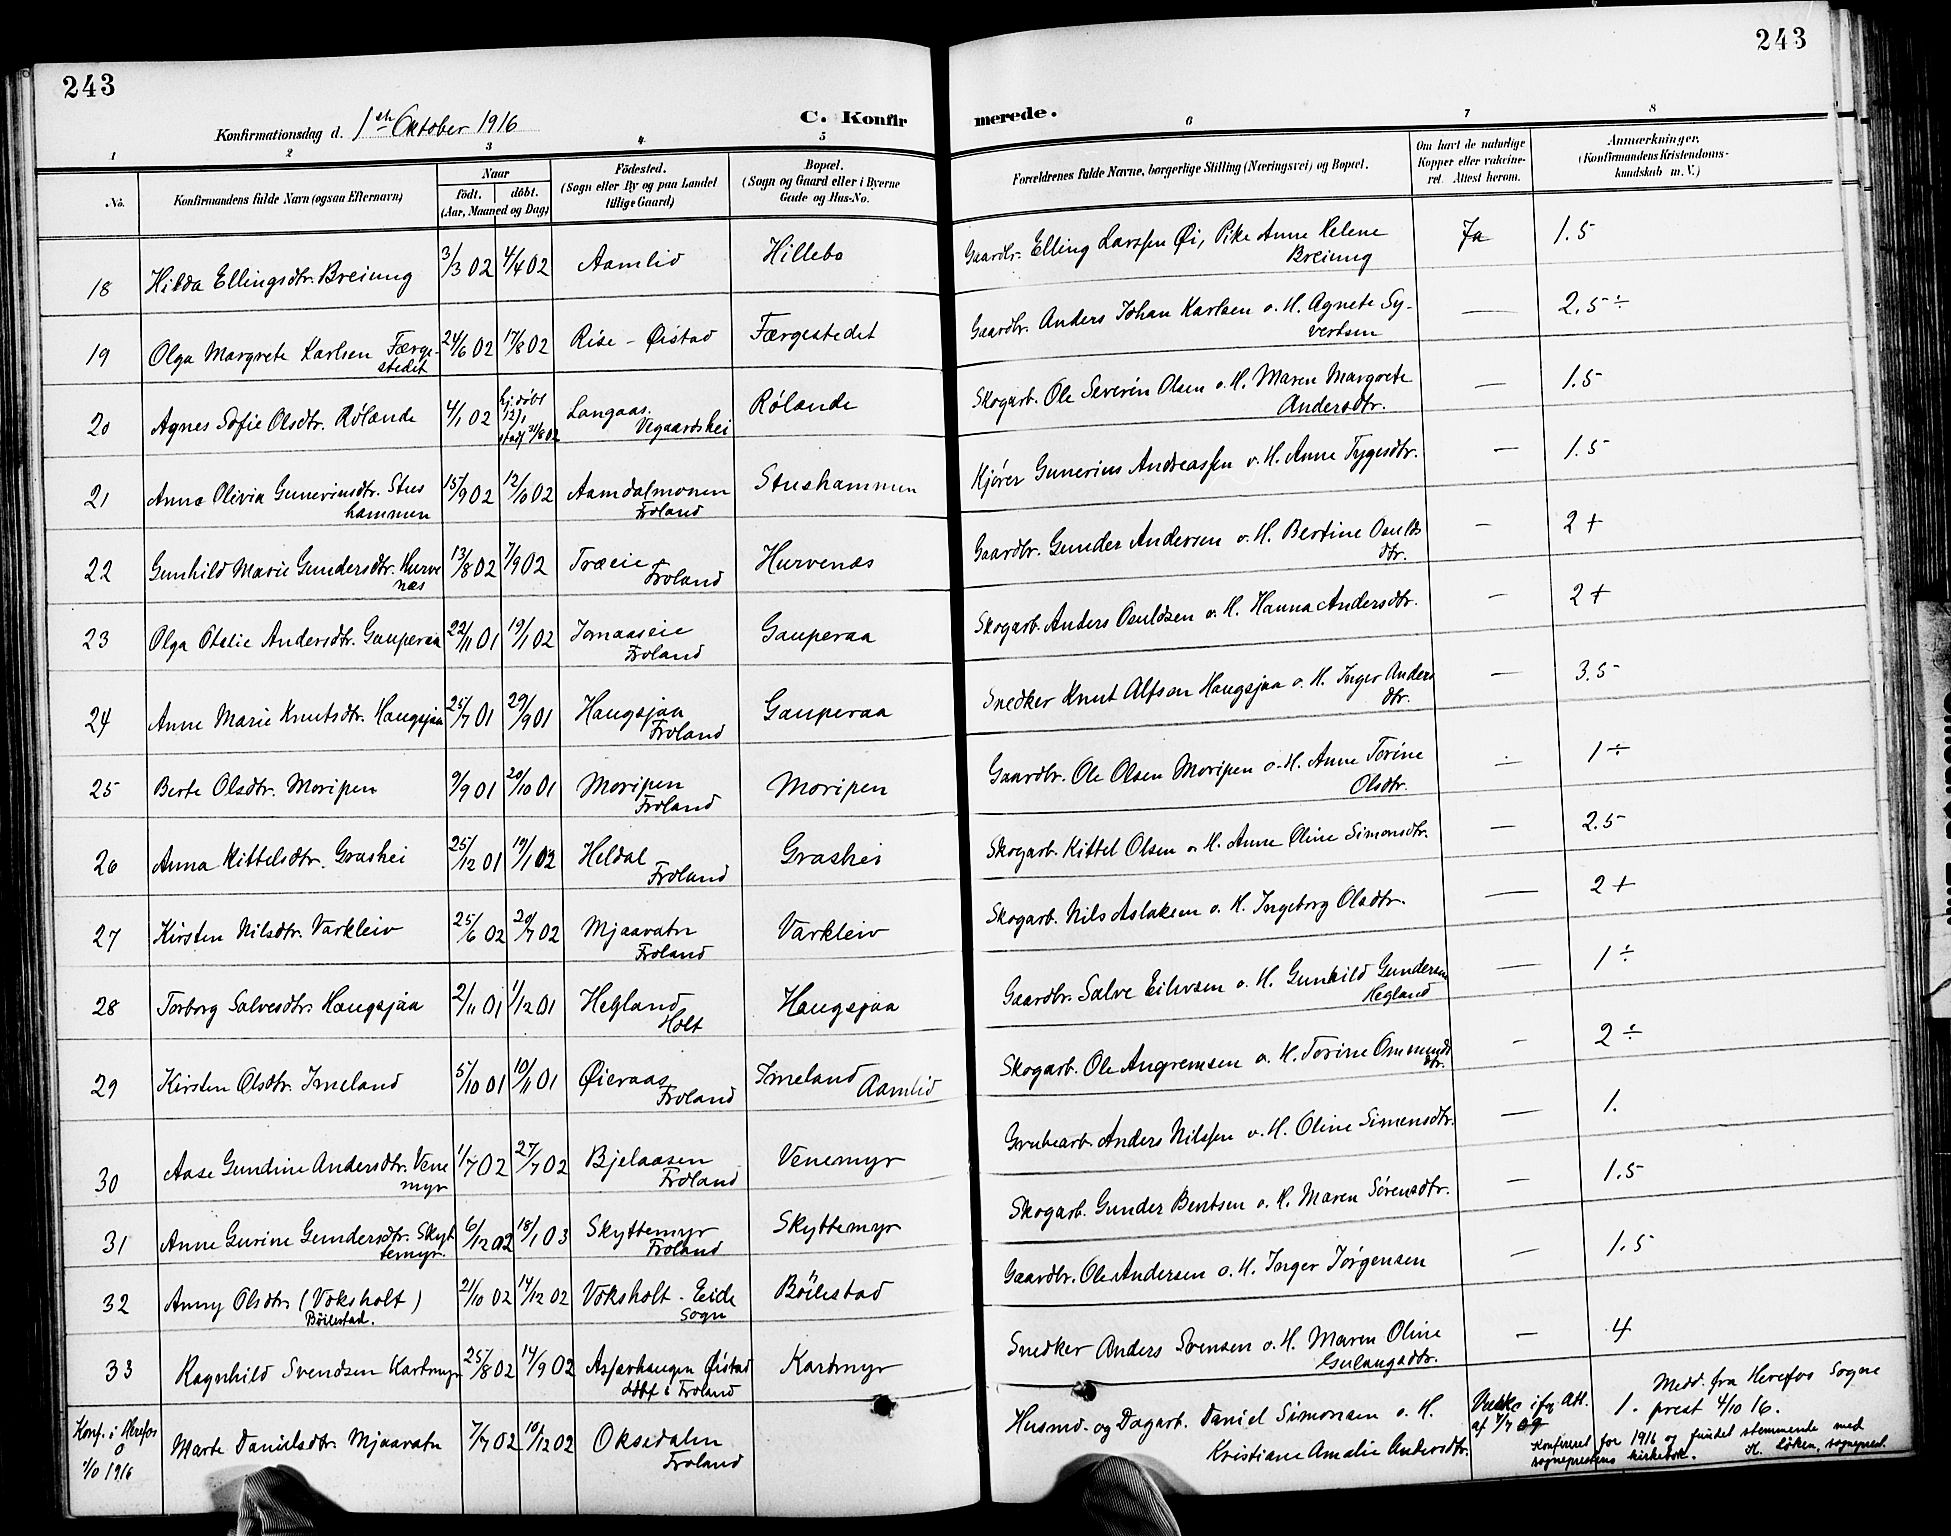 243
243
Konfirmationsdag d. 1ste Oktober 1916
C. Konfirmerede.
1 2 3 4 5 6 7 8
No.
Konfirmandens fulde Navn (ogsaa Efternavn)
Naar
født. døbt.
(Aar, Maaned og Dag)
Fødested.
(Sogn eller By og paa Landet
tillige Gaard)
Bopæl.
(Sogn og Gaard eller i Byerne
Gade og Hus-No.
Forældrenes fulde Navne, borgerlige Stilling (Næringsvei) og Bopæl.
Om havt de naturlige
Kopper eller vakcine-
ret. Attest herom.
Anmærkninger,
(Konfirmandens Kristendoms-
kundskab m. V.)
18 Hilda Ellingsdtr. Breiung 3/3 02 4/4 02 Aamlid Hillebo Gaardbr. Elling Larssen Øi, Pike Anne Helene Ja 1.5
Breiung
19 Olga Margrete Karlsen Færge- 24/6 02 17/8 02 Rise - Øistad Færgestedet Gaardbr. Anders Johan Karlsen o. H. Agnete Sy- — 2.5 ÷
stedet
vertsen
20 Agnes Sofie Olsdtr. Rølande 4/1 02 hj. døbt Langaas. Rølande Skogarb. Ole Severin Olsen o. H. Maren Margrete — 1.5
12/1
stadf 31/8 02 Vegaardshei
Andersdtr.
21 Anna Olivia Gunerinsdtr. Stus 15/9 02 12/10 02 Aamdalmonen Stushammen Kjører Gunerius Andreassen o. H. Anne Tygesdtr. — 1.5
hammen Froland
22 Gunhild Marie Gundersdtr. Hurve 13/8 02 7/9 02 Træeie Hurvenæs Gaardbr. Gunder Andersen o. H. Bertine Osulds — 2 +
næs Froland
dtr.
23 Olga Otelie Andersdtr. Gauperaa 22/11 01 19/1 02 Jomaaseie Gauperaa Skogarb. Anders Osuldsen o. H. Hanna Andersdtr. — 2 +
Froland
24 Anne Marie Knutsdtr. Haugsjaa 25/7 01 29/9 01 Haugsjaa Gauperaa Snedker Knut Alfsen Haugsjaa o. H. Inger Anders — 3.5
Froland
dtr.
25 Berte Olsdtr. Moripen 9/9 01 20/10 01 Moripen Moripen Gaardbr. Ole Olsen Moripen o. H. Anne Torine — 1 ÷
Froland
Olsdtr.
26 Anna Kittelsdtr. Grashei 25/12 01 19/1 02 Heldal Grashei Skogarb. Kittel Olsen o. H. Anne Oline Simonsdtr. — 2.5
Froland
27 Kirsten Nilsdtr. Varkleiv 25/6 02 20/7 02 Mjaavatn Varkleiv Skogarb. Nils Aslaksen o. H. Ingeborg Olsdtr. — 2 +
Froland
28 Torborg Salvesdtr. Haugsjaa 2/11 01 1/12 01 Hegland Haugsjaa Gaardbr. Salve Eilevsen o. H. Gunhild Gundersen — 1 ÷
Holt
Hegland
29 Kirsten Olsdtr. Imeland 5/10 01 10/11 01 Øieraas Imeland Skogarb. Ole Angremsen o. H. Torine Ommunds — 2 ÷
Froland Aamlid
dtr.
30 Aase Gundine Andersdtr. Vene 1/7 02 27/7 02 Bjelaasen Venemyr Grubearb. Anders Nilssen o. H. Oline Simensdtr. — 1.
myr Froland
31 Anne Gurine Gundersdtr. Skyt 6/12 02 18/1 03 Skyttemyr Skyttemyr Skogarb. Gunder Bentsen o. H. Maren Sørensdtr. — 1.5
temyr. Froland
32 Anny Olsdtr. (Voksholt) 21/10 02 14/12 02 Voksholt - Eide Böilestad Gaardbr. Ole Andersen o. H. Inger Jørgensen — 1.5
Böilestad. Sogn
33 Ragnhild Svendsen Kardmyr 25/8 02 14/9 02 Asfarhaugen Øistad Kardmyr Snedker Anders Svensen o. H. Maren Oline — 4
döbt i Froland
Gulaugsdtr.
Konf. i Herefos Marte Danielsdtr. Mjaavatn 7/7 02 10/12 02 Oksedalen Husmd. og Dagarb. Daniel Simonsen o. H. 1. Medd. fra Herefos Sogne
prest 4/10 16.
1/10 1916 Froland Kristiane Amalie Andersdtr.
Konfereret for 1916 og fundet stemmende med
sogneprestens kirkebok. H. Löken, sogneprest.